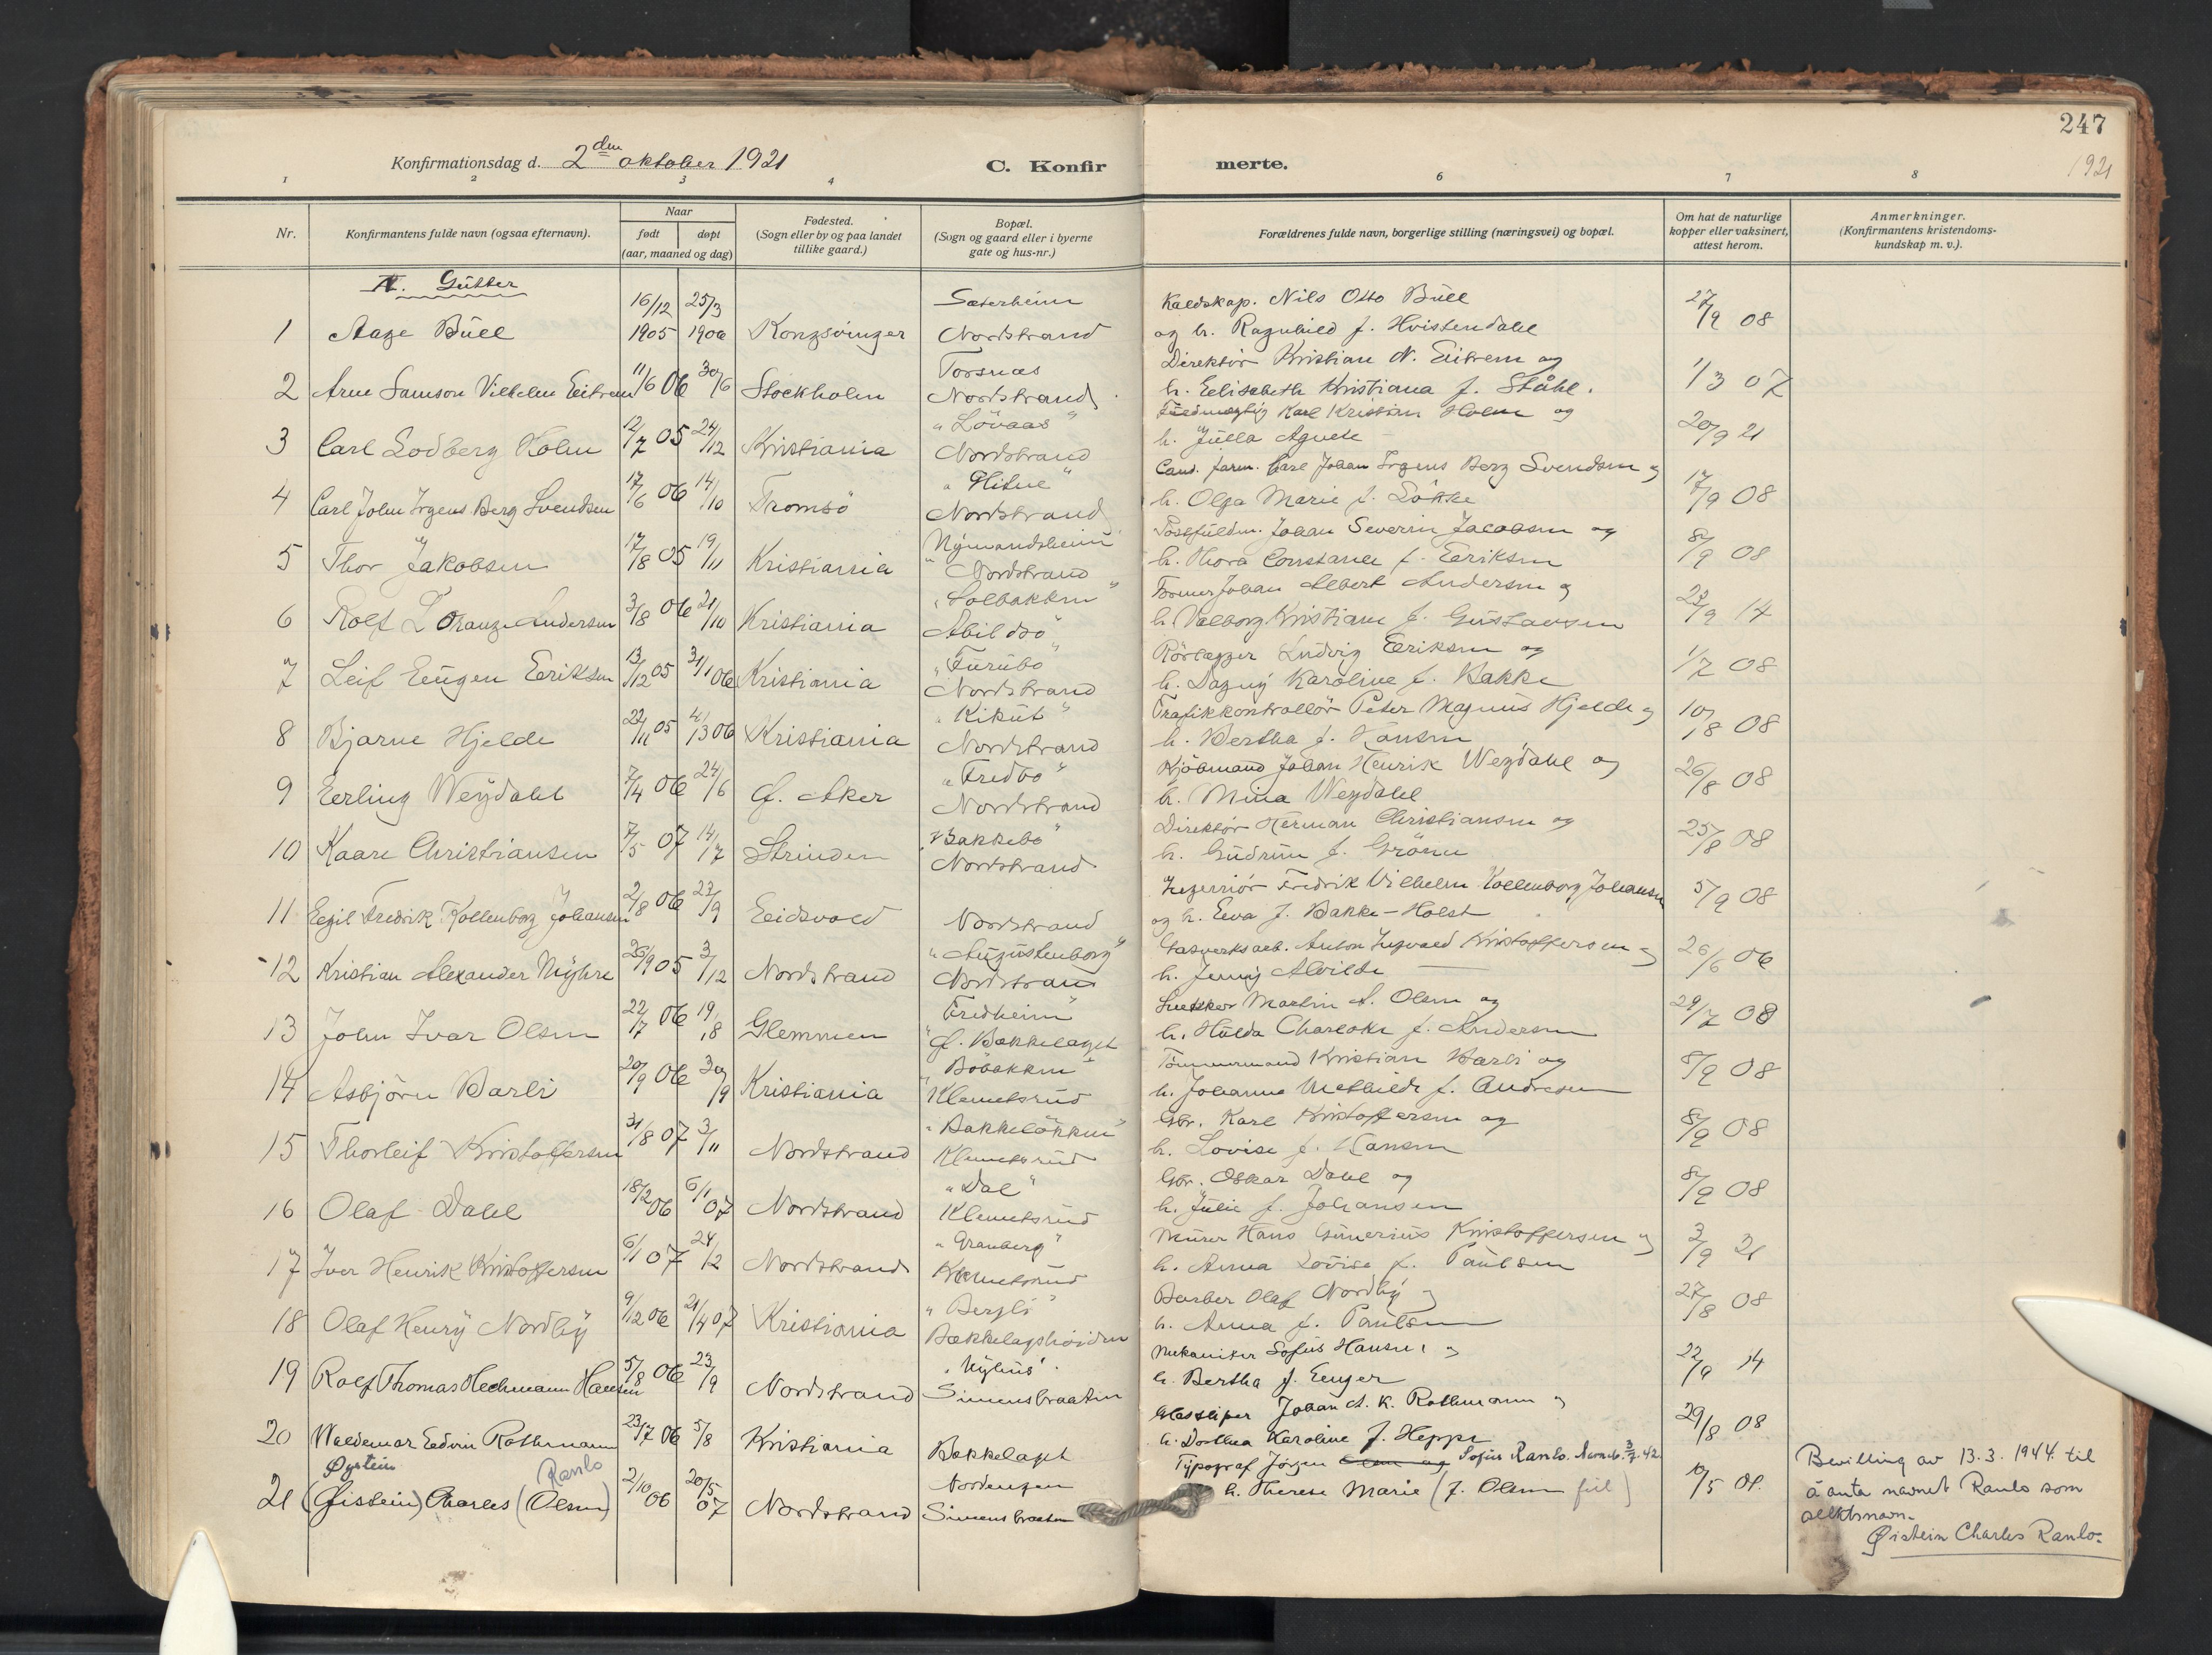 247
1921
Konfirmationsdag d. 2den oktober 1921
C. Konfirmerte.
1 2 3 4 6 7 8
Nr.
Konfirmantens fulde navn (ogsaa efternavn).
Naar
født døpt
(aar, maaned og dag)
Fødested.
(Sogn eller by og paa landet
tillike gaard.)
Bopæl.
(Sogn og gaard eller i byerne
gate og hus-nr.)
Forældrenes fulde navn, borgerlige stilling (næringsvei) og bopæl.
Om hat de naturlige
kopper eller vaksinert,
attest herom.
Anmerkninger.
(Konfirmantens kristendoms-
kundskap m. v.).
A. Gutter
16/12 25/3 Sæterheim Kaldskap. Nils Otto Bull 27/9 08
1 Aage Bull 1905 1906 Kongsvinger Nordstrand og h. Ragnhild f. Hvistendahl
Torsnæs Direktör Kristian N. Eitrem og
2 Arne Samson Vilhelm Eitrem 11/6 06 30/6 Stockholm Nordstrand h. Elisabeth Kristiana f. Ståhl. 1/3 07
"Lövaas" Fuldmægtig Karl Kristian Holm og
3 Carl Sodberg Holm 12/7 05 24/12 Kristiania Nordstrand h. Julla Agnete 20/9 21
"Hitne" Cand. farm. Carl Johan Irgens Berg Svendsen og
4 Carl John Irgens Berg Svendsen 17/6 06 14/10 Tromsö Nordstrand h. Olga Marie f. Lökke 17/9 08
Nymandsheim Postfuldm. Johan Severin Jacobsen og
5 Thor Jakobsen 17/8 05 19/11 Kristiania Nordstrand h. Thora Constance f. Eriksen 8/9 08
"Solbakken" Former Johan Albert Andersen og
6 Rolf Orange Andersen 3/8 06 21/10 Kristiania Abildsö h. Valborg Kristiane f. Gustavsen 22/9 14
"Furubo" Rörlægger Ludvig Eriksen og
7 Leif Eugen Eriksen 13/12 05 31/1 06 Kristiania Nordstrand h. Dagny Karoline f. Bakke 1/7 08
"Kikut" Trafikkontrollör Peter Magnus Hjelde og
8 Bjarne Hjelde 22/11 05 4/3 06 Kristiania Nordstrand h. Bertha f. Hansen 10/8 08
"Fredbo" Kjöbmand Johan Henrik Weydahl og
9 Erling Weydahl 7/4 06 24/6 Ö. Aker Nordstrand h. Mina Weydahl 26/8 08
"Bakkebo" Direktör Herman Christiansen og
10 Kaare Christiansen 7/5 07 14/7 Strinden Nordstrand h. Gudrun f. Grönn 25/8 08
Ingeniör Fredrik Vilhelm Kollenborg Johansen
11 Egil Fredrik Kollenborg Johansen 2/8 06 23/9 Eidsvold Nordstrand og h. Eva f. Bakke-Holst 5/9 08
"Augustenborg" Gasverksarb. Anton Ingvald Kristoffersen og
12 Kristian Alexander Myhre 26/9 05 3/12 Nordstrand Nordstrand h. Jenny Alvilde 26/6 06
"Fredheim" Snekker Martin A. Olsen og
13 John Ivar Olsen 22/7 06 19/8 Glemmen Ö. Bækkelaget h. Hulda Charlotte f. Andersen 29/7 08
"Böbakken" Tömmermand Kristian Barli og
14 Asbjörn Barli 20/9 06 30/9 Kristiania Klemetsrud h. Johanne Mathilde f. Andresen 8/9 08
"Bakkelökken" Gbr. Karl Kristoffersen og
15 Thorleif Kristoffersen 31/8 07 3/11 Nordstrand Klemetsrud h. Lovise f. Hansen 8/9 08
"Dal" Gbr. Oskar Dahl og
16 Olaf Dahl 18/2 06 6/1 07 Nordstrand Klemetsrud h. Julie f. Johansen 8/9 08
"Granberg" Murer Hans Gunerius Kristoffersen og
17 Iver Henrik Kristoffersen 6/1 07 24/2 Nordstrand Klemetsrud h. Anna Lovise f. Paulsen 3/9 21
"Bergli" Barber Olaf Nordby og
18 Olaf Henry Nordby 9/12 06 21/4 07 Kristiania Bækkelagshöiden h. Anna f. Paulsen 27/8 08
"Nyhus" Mekaniker Sofus Hansen og
19 Rolf Thomas Hechmann Hansen 5/8 06 23/9 Nordstrand Simensbraaten h. Bertha f. Enger 22/9 14
Glassliper Johan A. K. Rothmann og
20 Waldemar Edvin Rothmann 23/7 06 5/8 Kristiania Bækkelaget h. Dorthea Karoline f. Heppe 29/8 08
Øystein Ranlo Nordengen Typograf Jörgen Olsen og Sofus Ranlo. Navneb. 3/7. 42.
21 (Øistein) Charles (Olsen) 2/10 06 20/5 07 Nordstrand Simensbraaten h. Therese Marie (f. Olsen feil) 10/5 09.
Bevilling av 13.3. 1944 til
å anta navnet Ranlo som
slektsnavn.
Øistein Charles Ranlo.